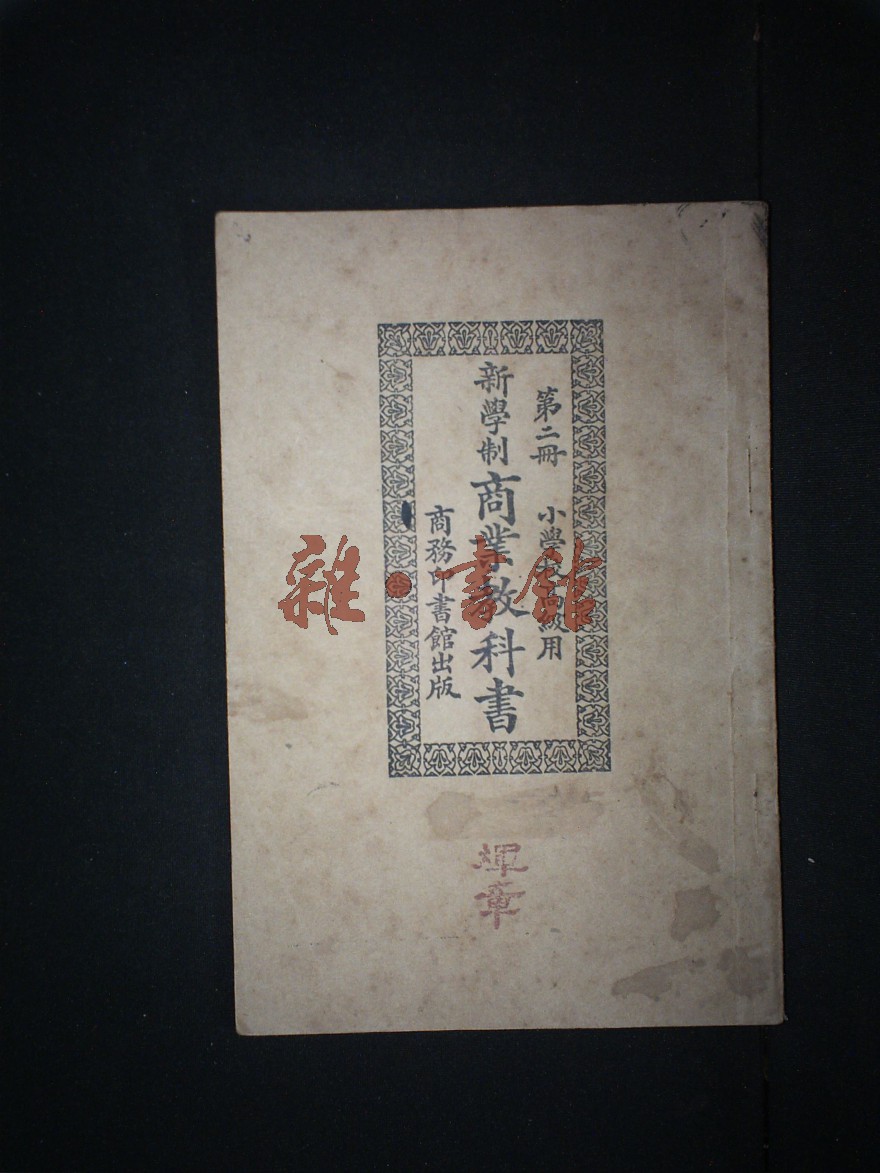 第二冊 小學校高級用
新學制商業教科書
商務印書館出版
雜·書館
輝章